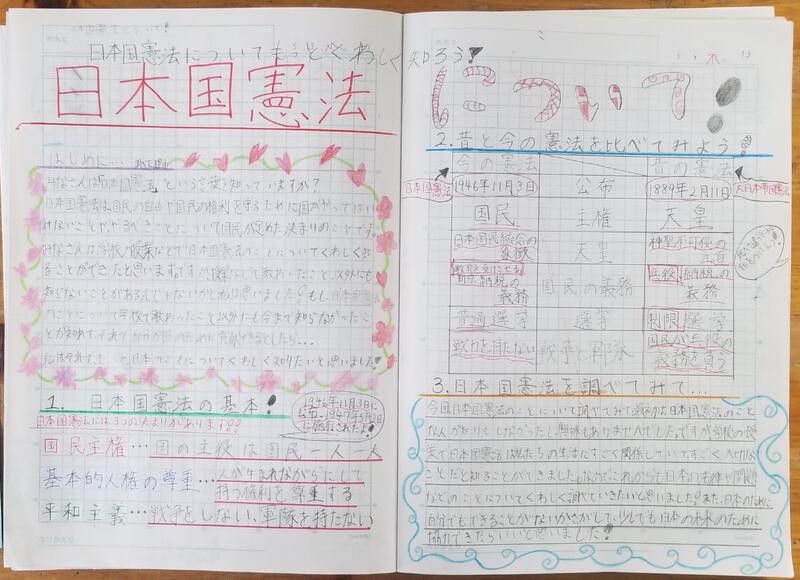 日本国憲法についてもっとくわしく知ろう!
日本国憲法
について!
はじめに…
みなさんは「日本国憲法」という言葉を知っていますか?
日本国憲法は国民の自由や国民の権利を守るために国がやってはい
けないことややるべきことについて国民が定めた決まりのことです。
みなさんは学校の授業などで日本国憲法のことについてくわしく知
ることができたと思います。ですが授業などで教わったこと以外にも
知らないことがあるんじゃないかと私は思いました!もし日本国憲法
のことについて学校で教わったこと以外にも今まで知らなかったこ
とが知れて、それで自分が国のために貢献できるとしたら…
私はそれでもっと日本のことについてくわしく知りたいと思いました!
1. 日本国憲法の基本!
1946年11月3日に
公布、1947年5月3日
に施行されたよ!
日本国憲法には3つの決まりがあります!!
国民主権…国の主役は国民一人一人
基本的人権の尊重…人が生まれながらにして
持つ権利を尊重する
平和主義…戦争をしない、軍隊を持たない
2.昔と今の憲法を比べてみよう!
今の憲法 昔の憲法
日本国憲法 大日本帝国憲法
1946年11月3日 公布 1889年2月11日
国民 主権 天皇
日本国民統合の象徴 天皇 神聖不可侵の
納税の義務 国民の義務 兵役、納税の義務
普通選挙 選挙 制限選挙
戦力を持たない 戦争と軍隊 国民が兵役の義務を負う
3.日本国憲法を調べてみて…
今回日本国憲法のことについて調べてみて最初は日本国憲法のこと
なんか知りもしなかったし、興味もありませんでした。ですが学校の授
業で日本国憲法は私たちの生活にすごく関係していてすごく大切な
ことだと知ることができました!なのでこれからも日本の法律や問題
などのことについてくわしく調べていきたいと思いました!また、日本のために
自分でもできることがないかさがして、少しでも日本の未来のために
協力できたらいいと思いました!